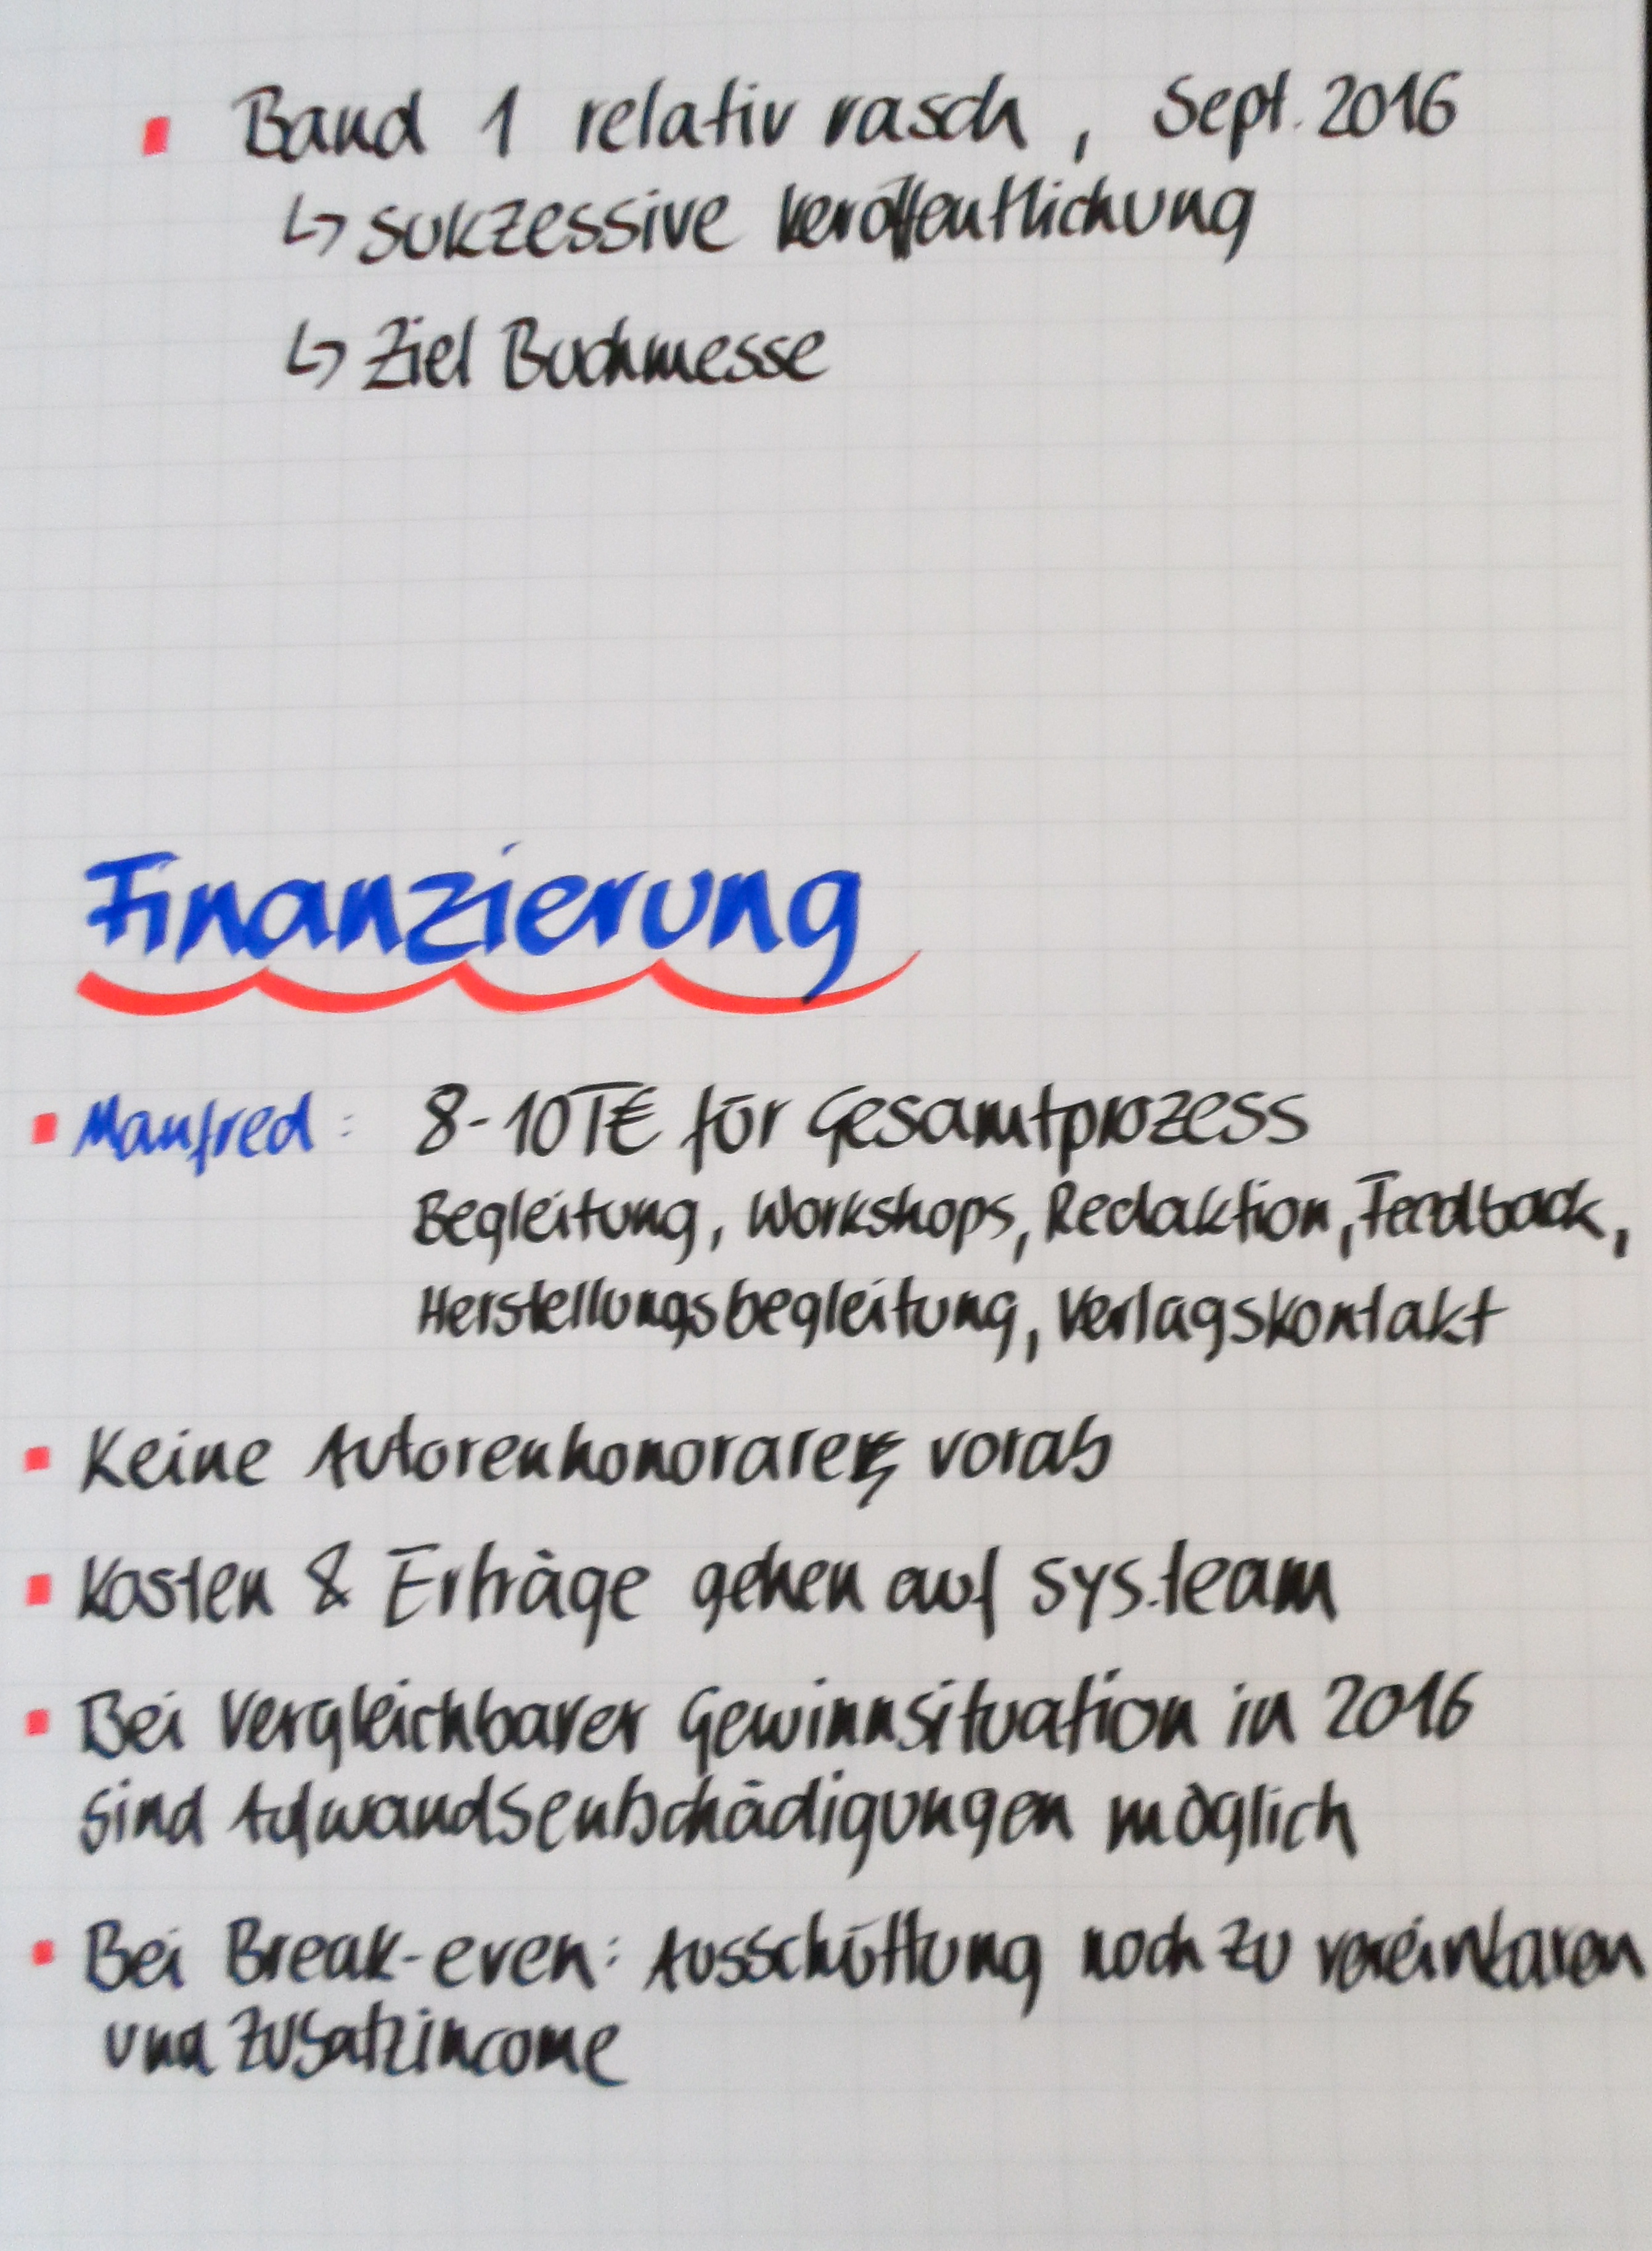 ▪ Band 1 relativ rasch, Sept. 2016
↳ sukzessive Veröffentlichung
↳ Ziel Buchmesse
Finanzierung
▪ Manfred: 8-10T€ für Gesamtprozess
Begleitung, Workshops, Redaktion, Feedback,
Herstellungsbegleitung, Verlagskontakt
▪ Keine Autorenhonorare vorab
▪ Kosten & Erträge gehen auf sys.team
▪ Bei vergleichbarer Gewinnsituation in 2016
sind Aufwandsentschädigungen möglich
▪ Bei Break-even: Ausschüttung noch zu vereinbaren
und Zusatzincome